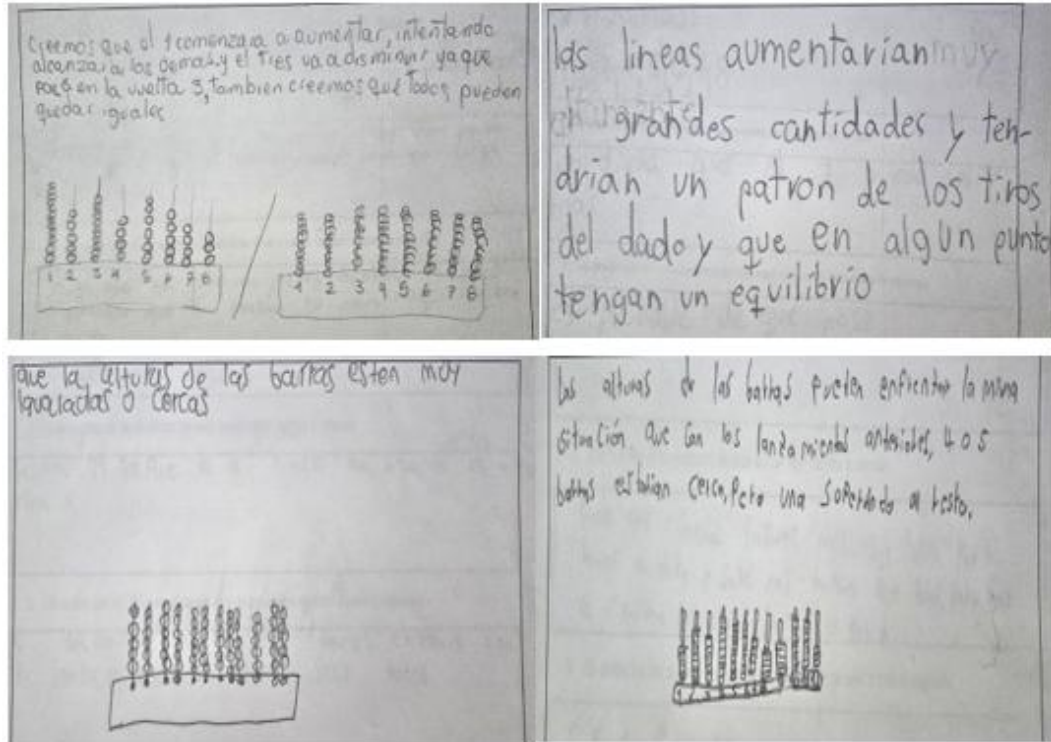 Creemos que el 1 comenzara a aumentar, intentando
alcanzar a los demas y el tres va a disminuir ya que
en la vuelta 3, tambien creemos que Todos pueden
quedar iguales
1 2 3 4 5 6 7 8
1 2 3 4 5 6 7 8
las lineas aumentarian muy
grandes cantidades y ten-
drian un patron de los tiros
del dado y que en algun punto
tengan un equilibrio
que la alturas de las barras esten muy
igualadas o cercas
Las alturas de las barras pueden enfrentar la misma
situación que con los lanzamientos anteriores, 4 o 5
barras estarian cerca, pero una al resto.